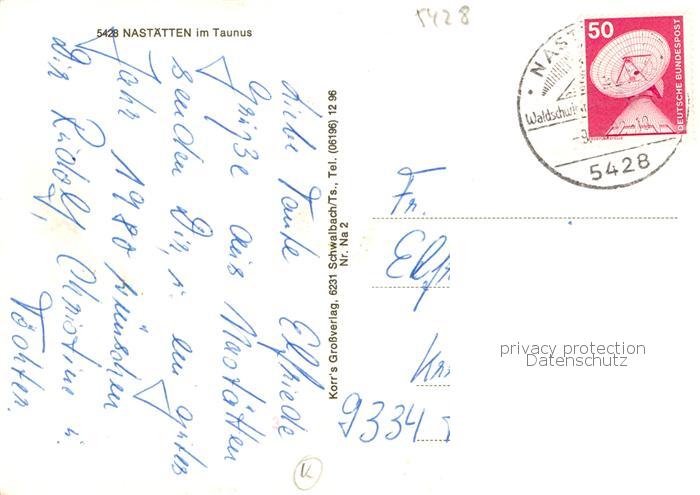 5428 NASTÄTTEN im Taunus
5428
Liebe Tante Elfriede
Grüße aus Nastätten
senden Dir, u. ein gutes
Jahr 1980 wünschen
Dir Rudolf, Christine u.
Töchter.
Korr's Großverlag, 6231 Schwalbach/Ts., Tel. (06196) 12 96
Nr. Na 2
50
DEUTSCHE BUNDESPOST
NAST
Waldschwi
5428
Fr.
Elfr
Kr
9334
privacy protection
Datenschutz